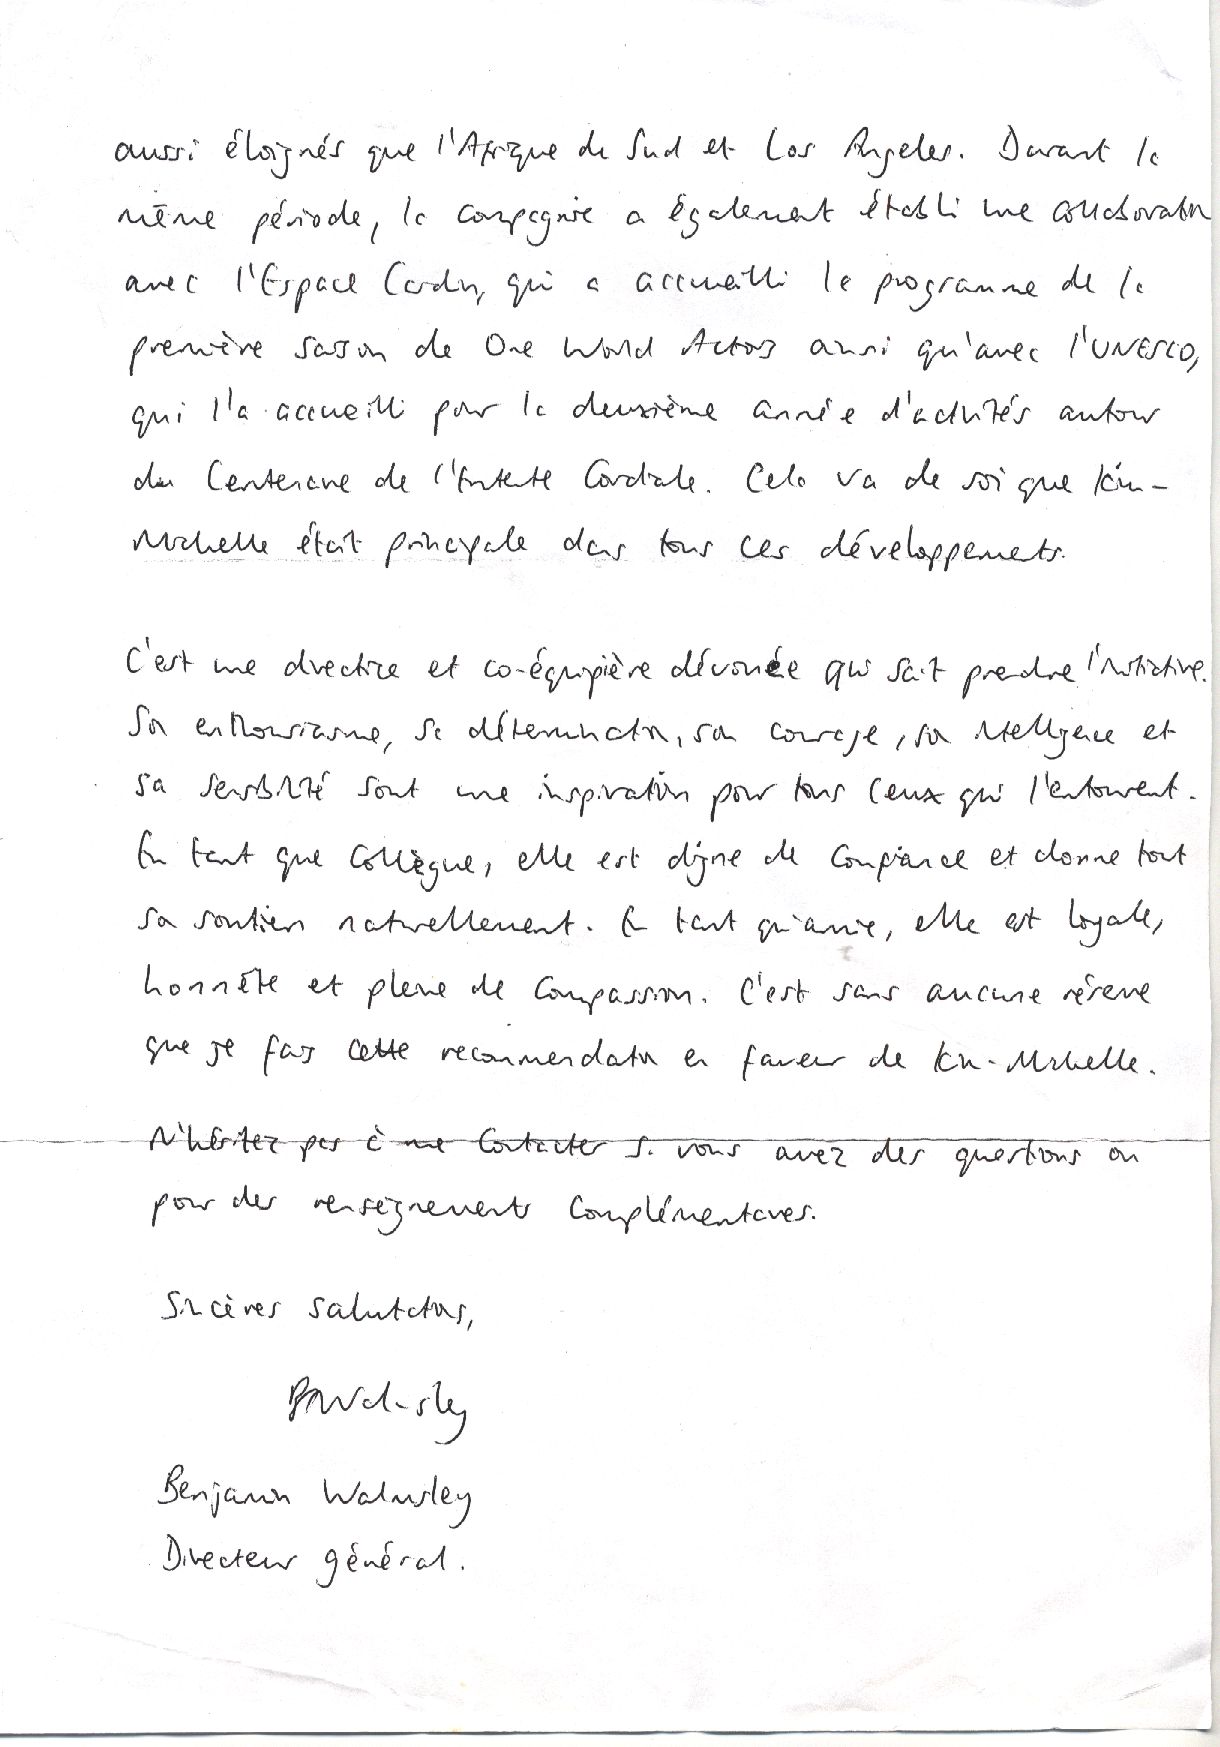 aussi éloignés que l'Afrique du Sud et Los Angeles. Durant la
même période, la compagnie a également établi une collaboration
avec l'Espace Cardin, qui a accueilli le programme de la
première saison de One World Actors ainsi qu'avec l'UNESCO,
qui l'a accueilli pour la deuxième année d'activités autour
du Centenaire de l'Entente Cordiale. Cela va de soi que Kim-
Michelle était principale dans tous ces développements.
C'est une directrice et co-équipière dévouée qui sait prendre l'initiative.
Son enthousiasme, sa détermination, son courage, son intelligence et
sa sensibilité sont une inspiration pour tous ceux qui l'entourent.
En tant que collègue, elle est digne de confiance et donne tout
son soutien naturellement. En tant qu'amie, elle est loyale,
honnête et pleine de compassion. C'est sans aucune réserve
que je fais cette recommendation en faveur de Kim-Michelle.
N'hésitez pas à me contacter si vous avez des questions ou
pour des renseignements complémentaires.
Sincères salutations,
BAWalmsley
Benjamin Walmsley
Directeur général.